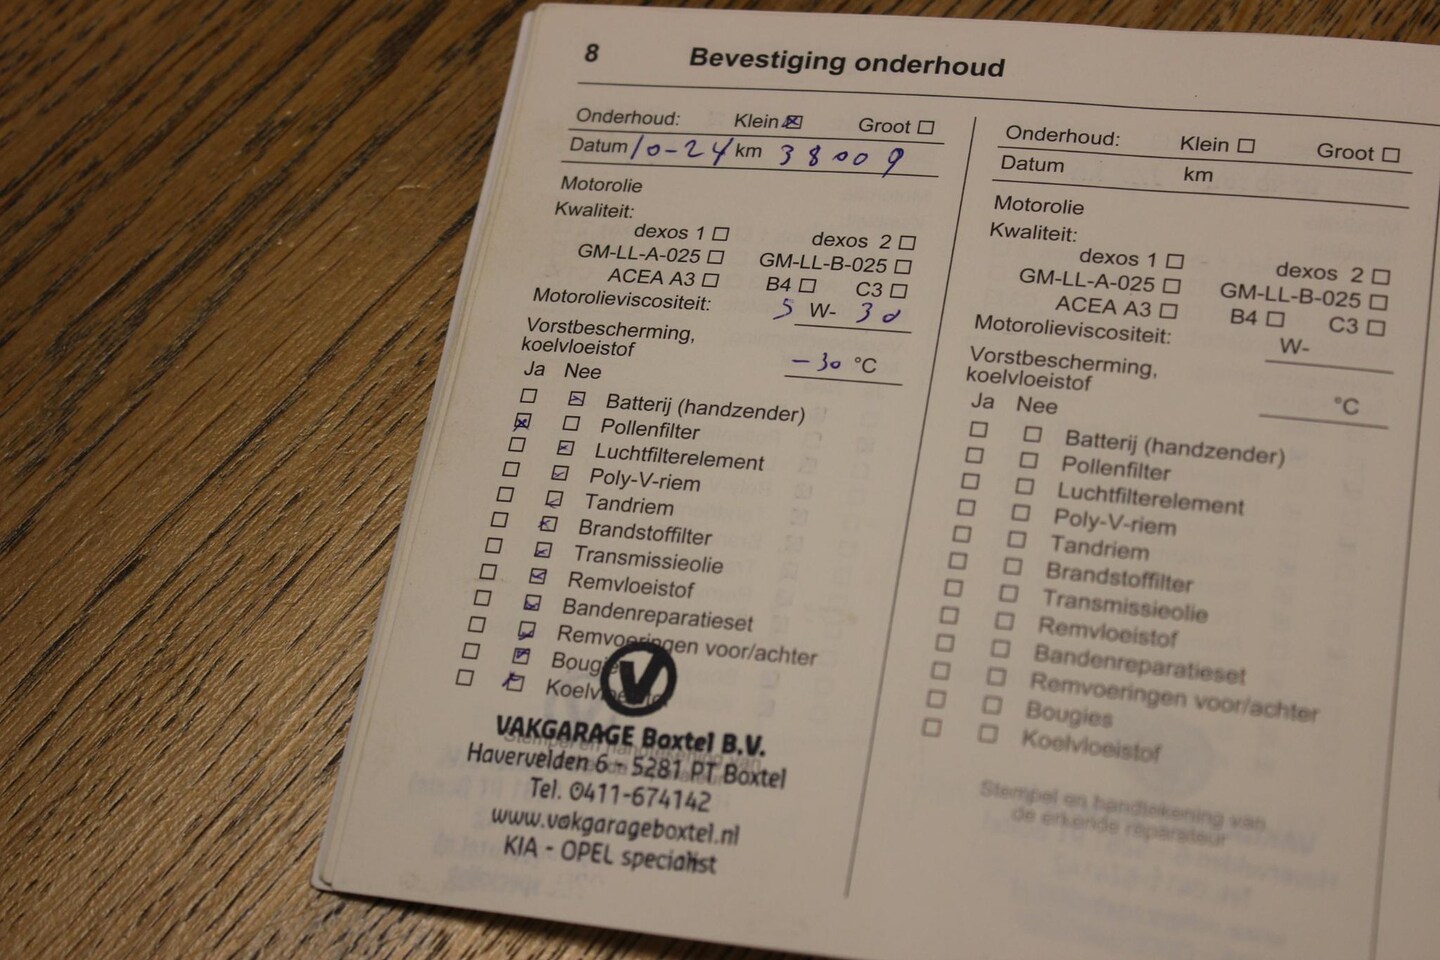 8 Bevestiging onderhoud
Onderhoud: Klein Groot
Datum 10-24 km 38009
Motorolie
Kwaliteit:
dexos 1 dexos 2
GM-LL-A-025 GM-LL-B-025
ACEA A3 B4 C3
Motorolieviscositeit: 5 W- 30
Vorstbescherming,
koelvloeistof -30 °C
Ja Nee
Batterij (handzender)
Pollenfilter
Luchtfilterelement
Poly-V-riem
Tandriem
Brandstoffilter
Transmissieolie
Remvloeistof
Bandenreparatieset
Remvoeringen voor/achter
Bougies
Koelvloeistof
V
VAKGARAGE Boxtel B.V.
Stempel en handtekening van
Havervelden 6 - 5281 PT Boxtel
Tel. 0411-674142
www.vakgarageboxtel.nl
KIA - OPEL specialist
Onderhoud: Klein Groot
Datum km
Motorolie
Kwaliteit:
dexos 1 dexos 2
GM-LL-A-025 GM-LL-B-025
ACEA A3 B4 C3
Motorolieviscositeit: W-
Vorstbescherming,
koelvloeistof °C
Ja Nee
Batterij (handzender)
Pollenfilter
Luchtfilterelement
Poly-V-riem
Tandriem
Brandstoffilter
Transmissieolie
Remvloeistof
Bandenreparatieset
Remvoeringen voor/achter
Bougies
Koelvloeistof
Stempel en handtekening van
de erkende reparateur